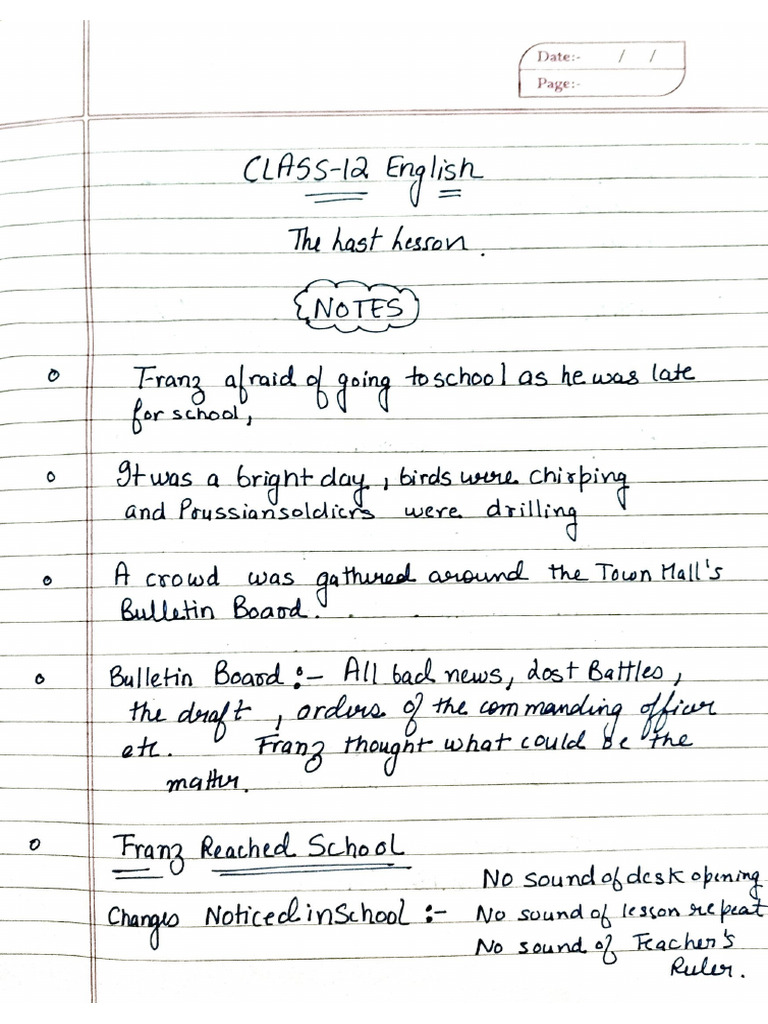 Date:- / /
Page:-
CLASS-12 English
The Last Lesson.
NOTES
Franz afraid of going to school as he was late
for school,
It was a bright day, birds were chirping
and Prussian soldiers were drilling
A crowd was gathered around the Town Hall's
Bulletin Board.
Bulletin Board :- All bad news, Lost Battles,
the draft, orders of the commanding officer
etc. Franz thought what could be the
matter.
Franz Reached School
No sound of desk opening
Changes Noticed in School :- No sound of lesson repeat
No sound of Teacher's
Ruler.